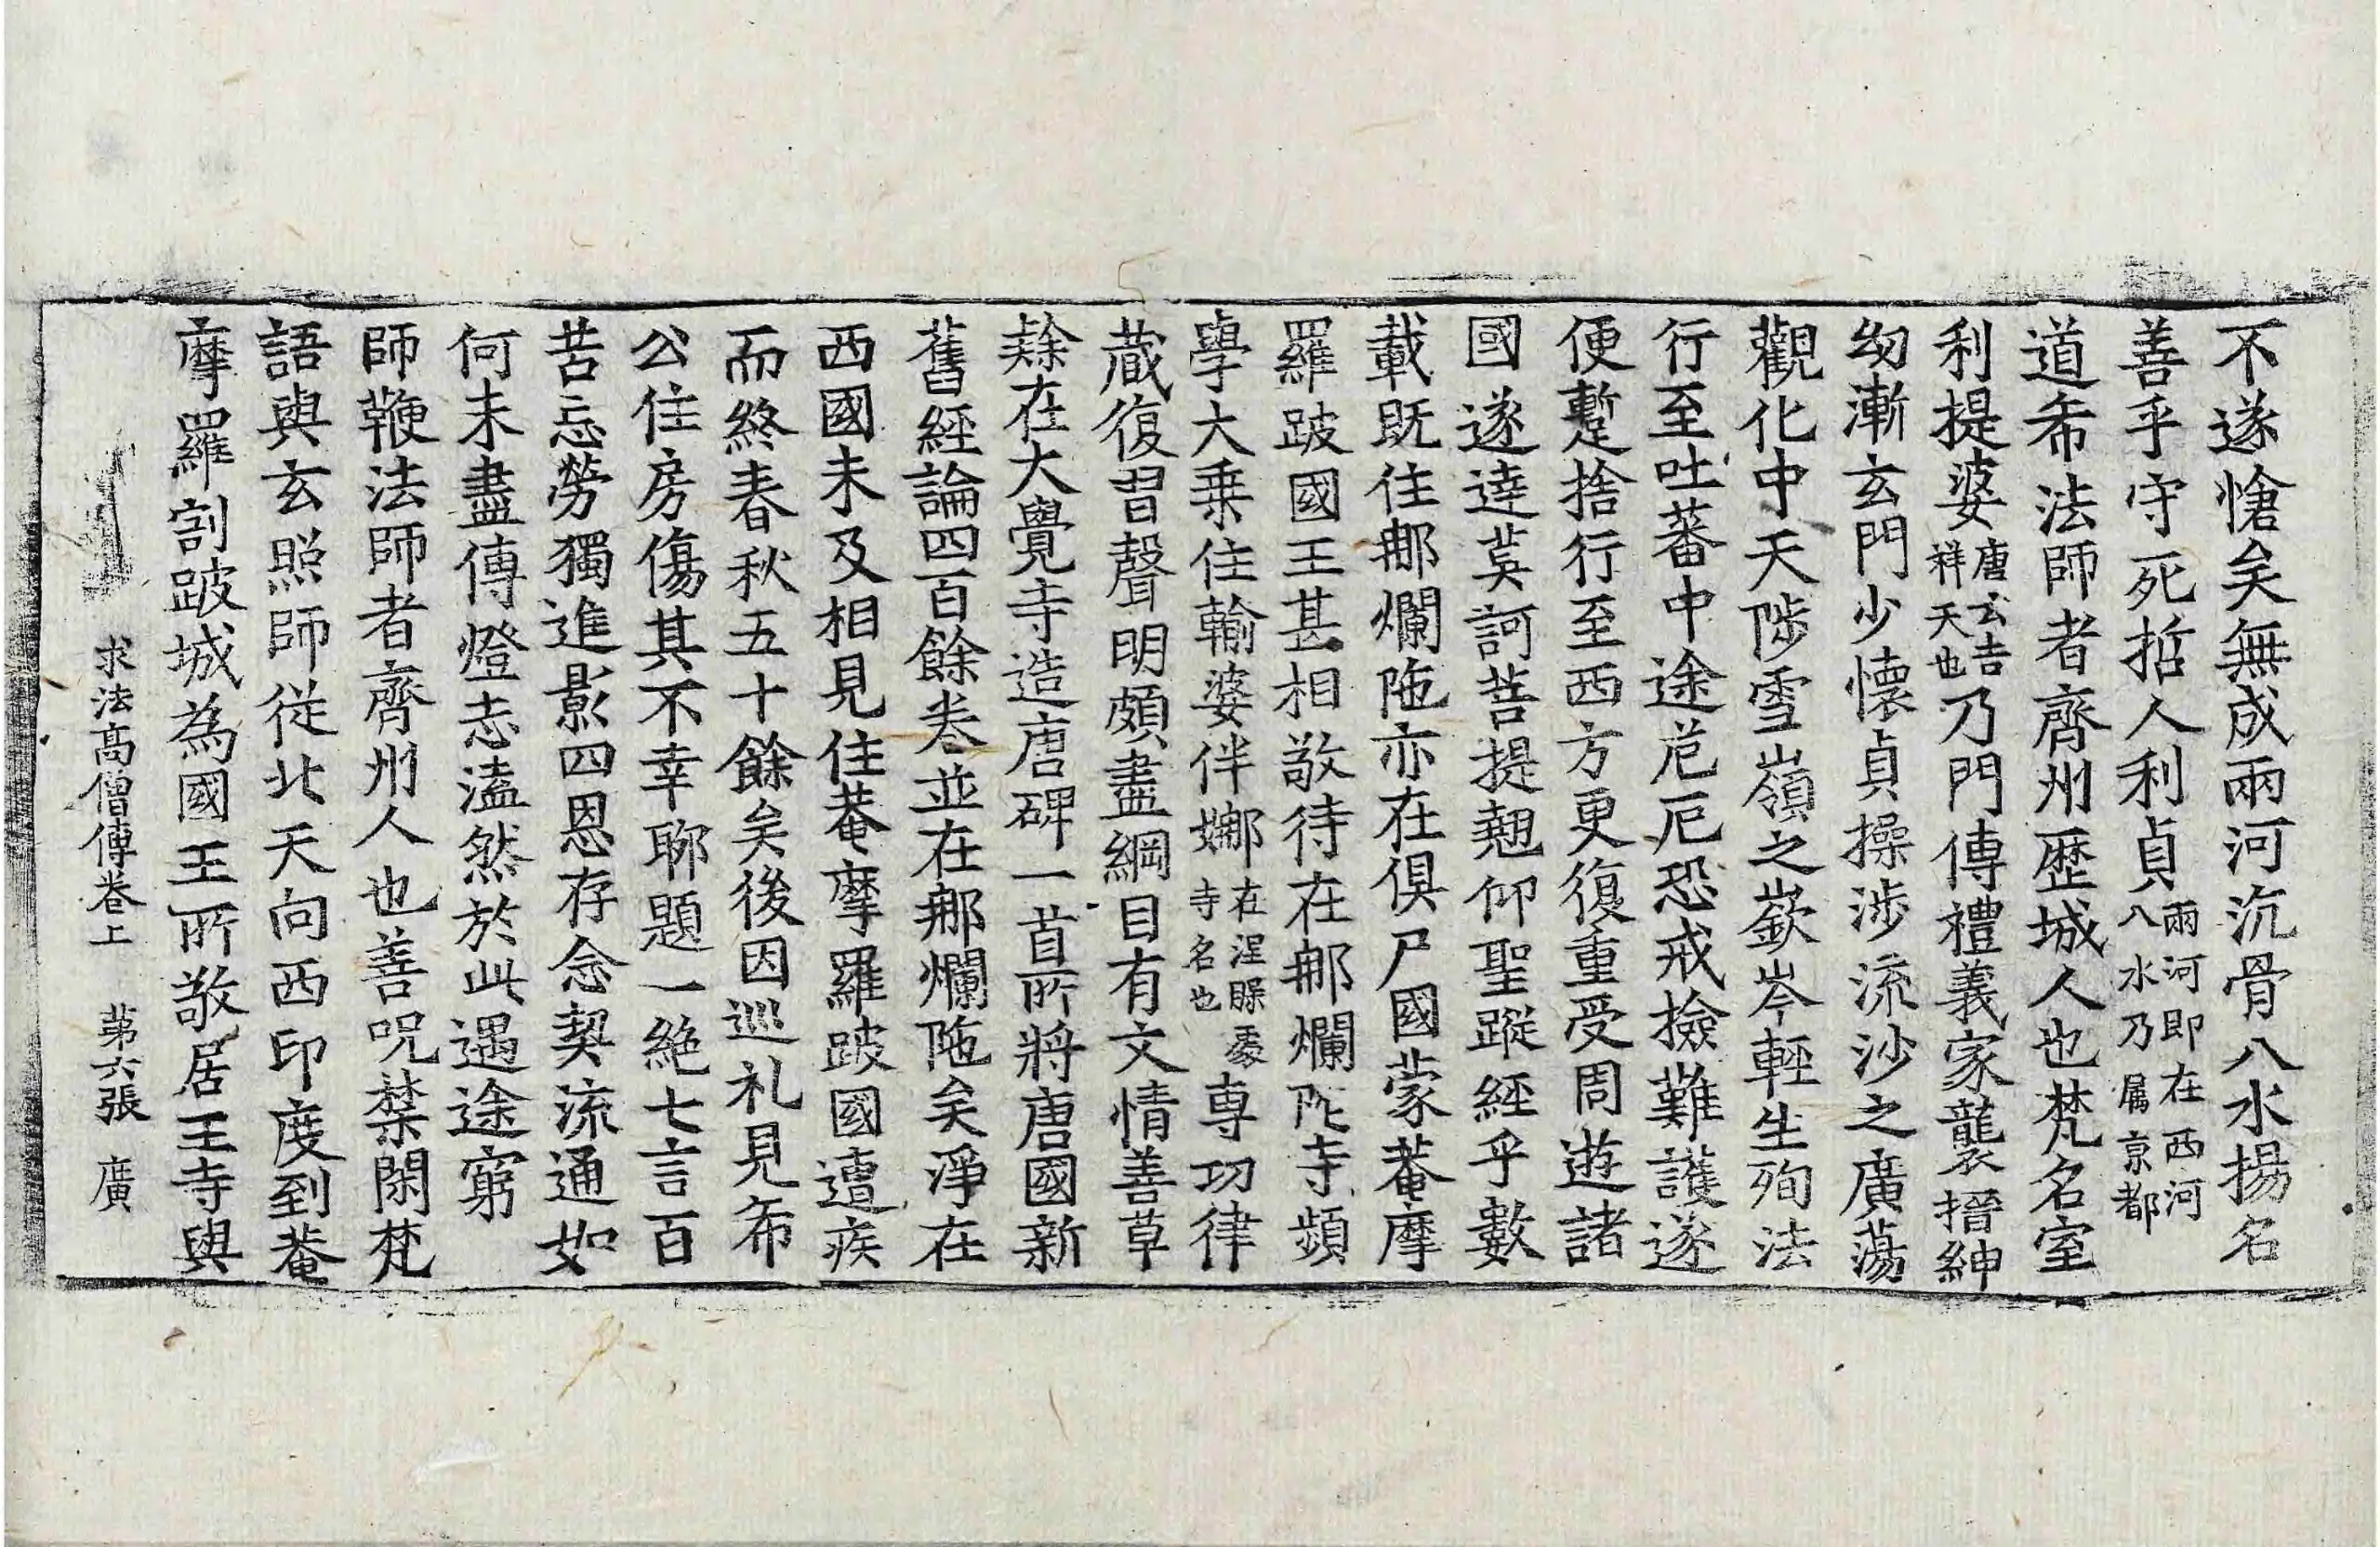 不遂愴矣無成兩河沉骨八水揚名
善乎守死哲人利貞兩河即在西河八水乃属京都
道希法師者齊州歴城人也梵名室
利提婆唐云吉祥天也乃門傳禮義家襲搢紳
幼漸玄門少懷貞操涉流沙之廣蕩
觀化中天陟雪嶺之嶔岑輕生殉法
行至吐蕃中途危厄恐戒檢難護遂
便蹔捨行至西方更復重受周遊諸
國遂達莫訶菩提翹仰聖蹤經乎數
載既住那爛陁亦在俱尸國蒙菴摩
羅跛國王甚相敬待在那爛陀寺頻
學大乗住輸婆伴娜在涅槃處寺名也専功律
蔵復習聲明頗盡綱目有文情善草
隸在大覺寺造唐碑一首所將唐國新
舊經論四百餘卷並在那爛陁矣淨在
西國未及相見住菴摩羅跛國遭疾
而終春秋五十餘矣後因巡礼見希
公住房傷其不幸聊題一絶七言百
苦忘勞獨進影四恩存念契流通如
何未盡傳燈志溘然於此遇途窮
師鞭法師者齊州人也善呪禁閑梵
語與玄照師從北天向西印度到菴
摩羅割跛城為國王所敬居王寺與
求法高僧傳卷上 苐六張 廣